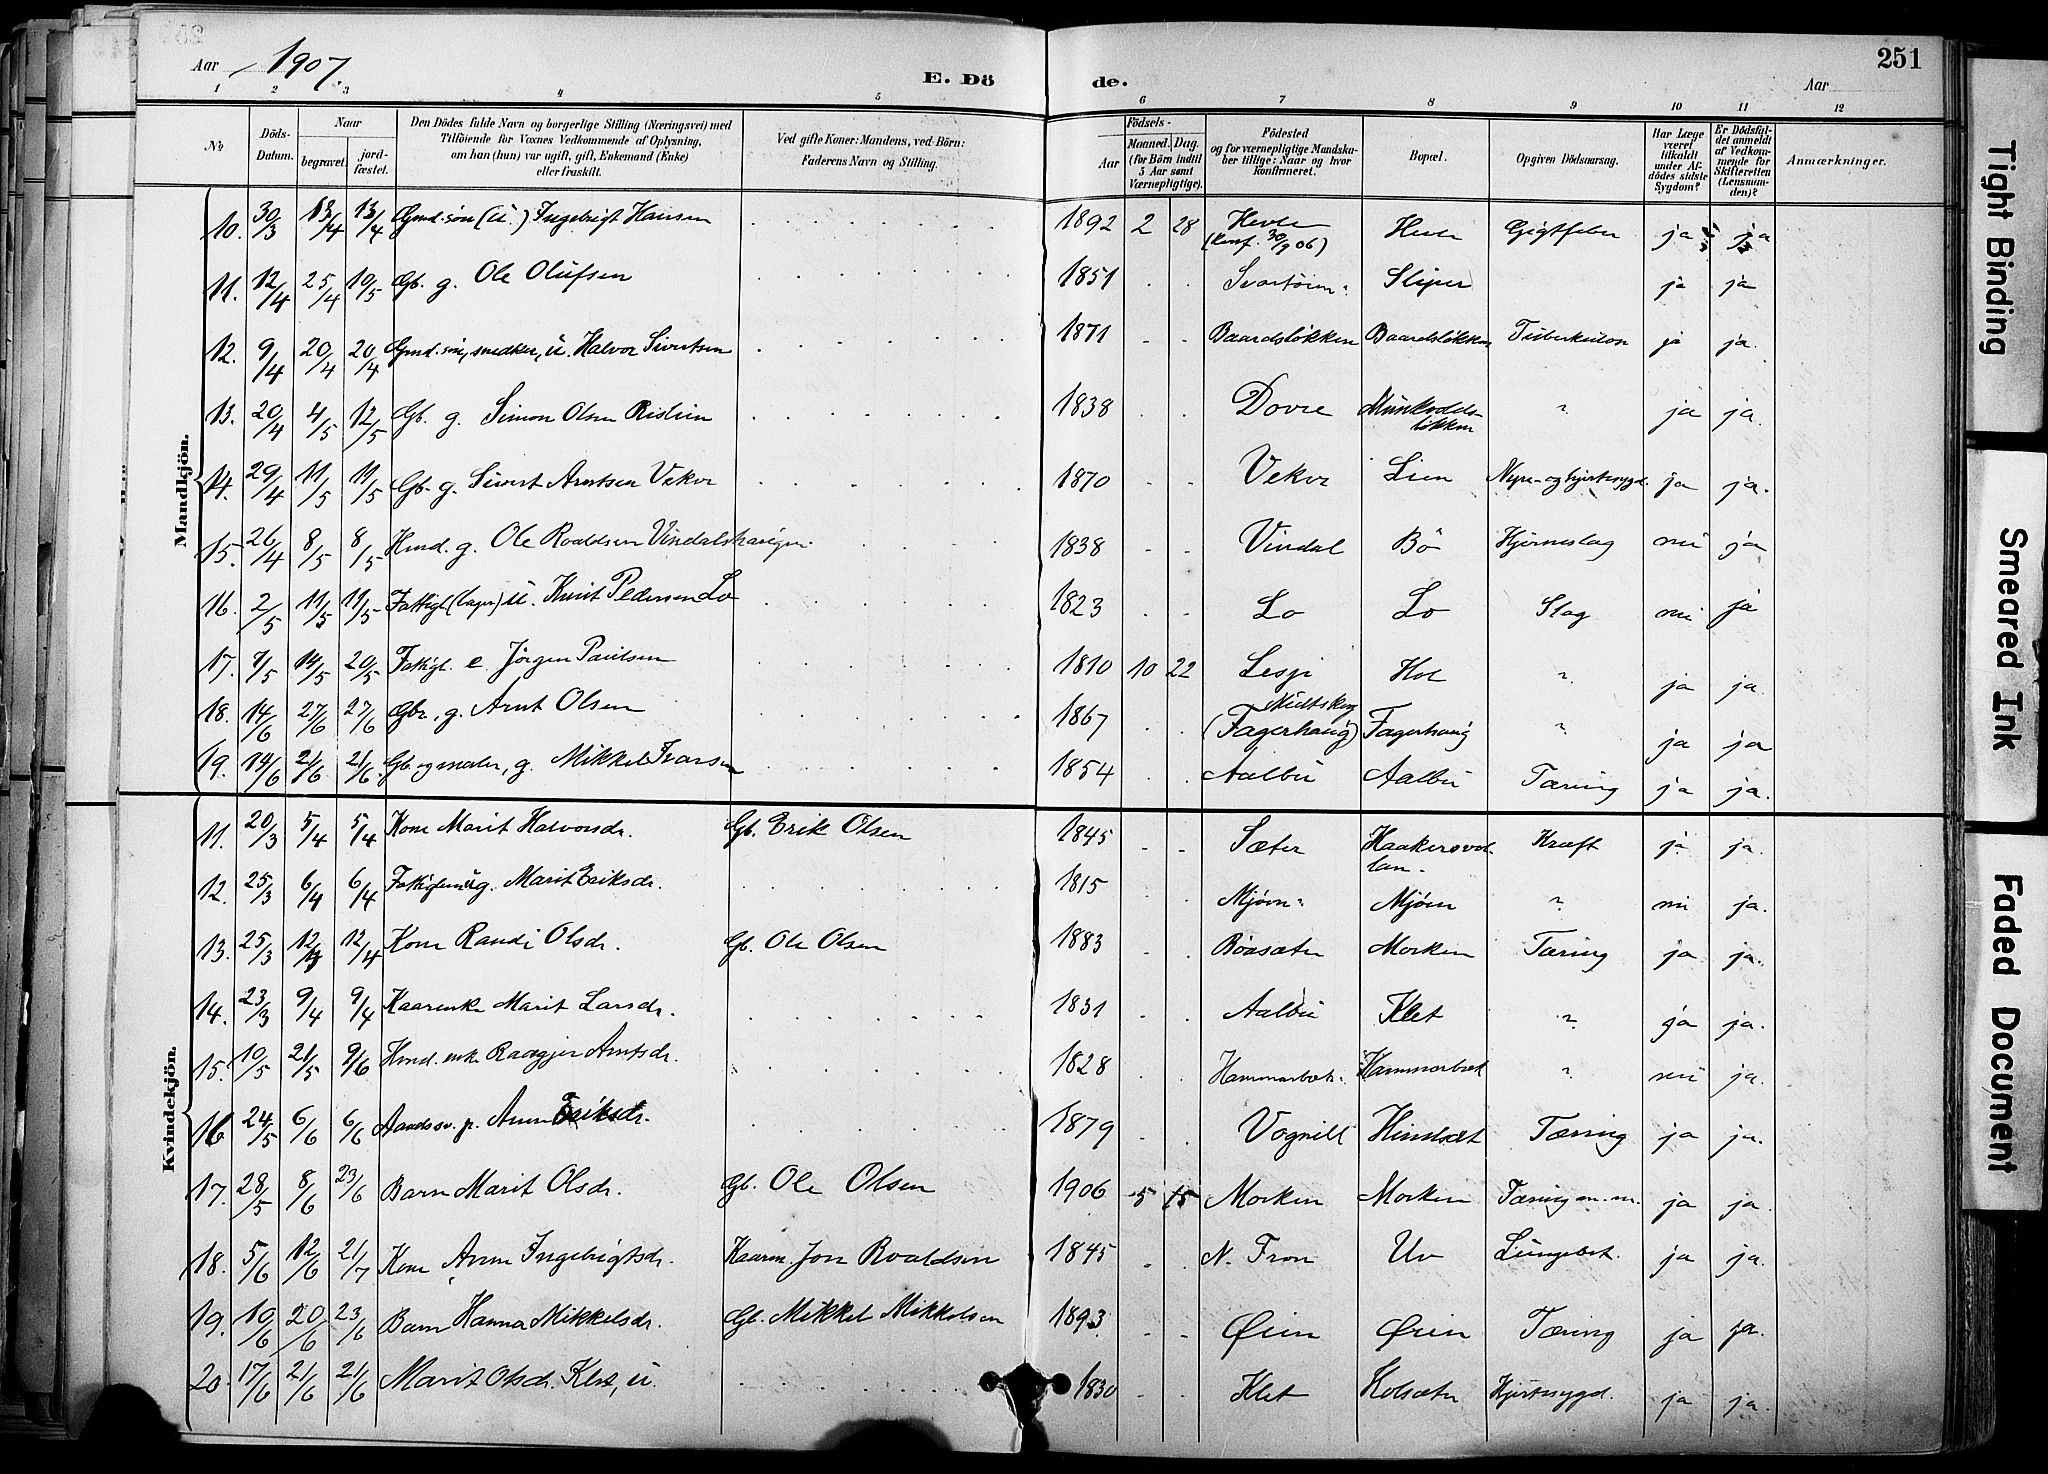 Aar 1907. E. Dö de. Aar 251
1 2 3 4 5 6 7 8 9 10 11 12
№ Döds-Datum. Naar begravet. jordfæstet. Den Dödes fulde Navn og borgerlige Stilling (Næringsvei) med Tilföiende for Voxnes Vedkommende af Oplysning, om han (hun) var ugift, gift, Enkemand (Enke) eller fraskilt. Ved gifte Koner: Mandens, ved Börn: Faderens Navn og Stilling. Födsels- Aar Maaned. Dag. (for Börn indtil 5 Aar samt Værnepligtige). Födested og for værnepligtige Mandskaber tillige: Naar og hvor konfirmeret. Bopæl. Opgiven Dödsaarsag. Har Læge været tilkaldt under Afdödes sidste Sygdom? Er Dödsfaldet anmeldt af Vedkommende for Skifteretten (Lensmanden)? Anmærkninger.
Mandkjön.
10. 30/3 13/4 13/4 Gmd.søn (u.) Ingebrigt Hansen 1892 2 28 Hevle (konf. 30/9 06) Hevle Gigtfeber ja ja
11. 12/4 25/4 10/5 Gb. g. Ole Olufsen 1851 Svartøien Sliper ja ja
12. 9/4 20/4 20/4 Gmd.søn, snedker, u. Halvor Sivertsen 1871 Baardsløkken Baardsløkken Tuberkulose ja ja.
13. 20/4 4/5 12/5 Gb. g. Simon Olsen Risliin 1838 Dovre løkken " ja ja.
14. 29/4 11/5 11/5 Gb. g. Sivert Arntsen Vekve 1870 Vekve Lien Nyre- og hjertesygd. ja ja.
15. 26/4 8/5 8/5 Hmd. g. Ole Roaldsen Vindalshaugen 1838 Vindal Bö Hjerneslag nei ja
16. 2/5 11/5 11/5 Fattigl. (Lager) u. Knut Pedersen Lo 1823 Lo Lo Slag nei ja
17. 7/5 14/5 20/5 Fattigl. e. Jörgen Paulsen 1810 10 22 Lesje Hol " ja ja.
18. 14/6 27/6 27/6 Gbr. g. Arnt Olsen 1867 Midtskog (Fagerhaug) Fagerhaug " ja ja
19. 14/6 21/6 21/6 Gb. og maler, g. Mikkel Ivarsen 1854 Aalbu Aalbu Tæring ja ja.
Kvindekjön.
11. 20/3 5/4 5/4 Kone Marit Halvorsdr. Gb. Erik Olsen 1845 Sæter Haakersvollan. Kræft ja ja.
12. 25/3 6/4 6/4 Fattiglem ug. Marit Eriksdr. 1815 Mjøen Mjøen " nei ja.
13. 25/3 12/4 12/4 Kone Randi Olsdr. Gb. Ole Olsen 1883 Böasæter Morken Tæring ja ja.
14. 23/3 9/4 9/4 Kaarenke Marit Larsdr. 1831 Aalbu Klet " ja ja.
15. 10/5 21/5 9/6 Hmd. enke Arntsdr. 1828 Hammerbæk Hammerbæk " nei ja.
16 24/5 6/6 6/6 Aandssv. p. Anne Eriksdr. 1879 Vognill Hindsæt Tæring ja ja.
17. 28/5 8/6 23/6 Barn Marit Olsdr. Gb. Ole Olsen 1906 5 15 Morken Morken Tæring m. m. ja ja.
18. 5/6 12/6 21/7 Kone Anne Ingebrigtsdr. Kaarm. Jon Roaldsen 1845 N. Fron Uv Lungebet. ja ja.
19. 10/6 20/6 23/6 Barn Hanna Mikkelsdr. Gb. Mikkel Mikkelsen 1893 Øien Øien Tæring ja ja.
20. 17/6 21/6 21/6 Marit Olsdr. Klet, u. 1830 Klet Holsæter Hjertesygd. ja ja.
Tight Binding
Smeared Ink
Faded Document